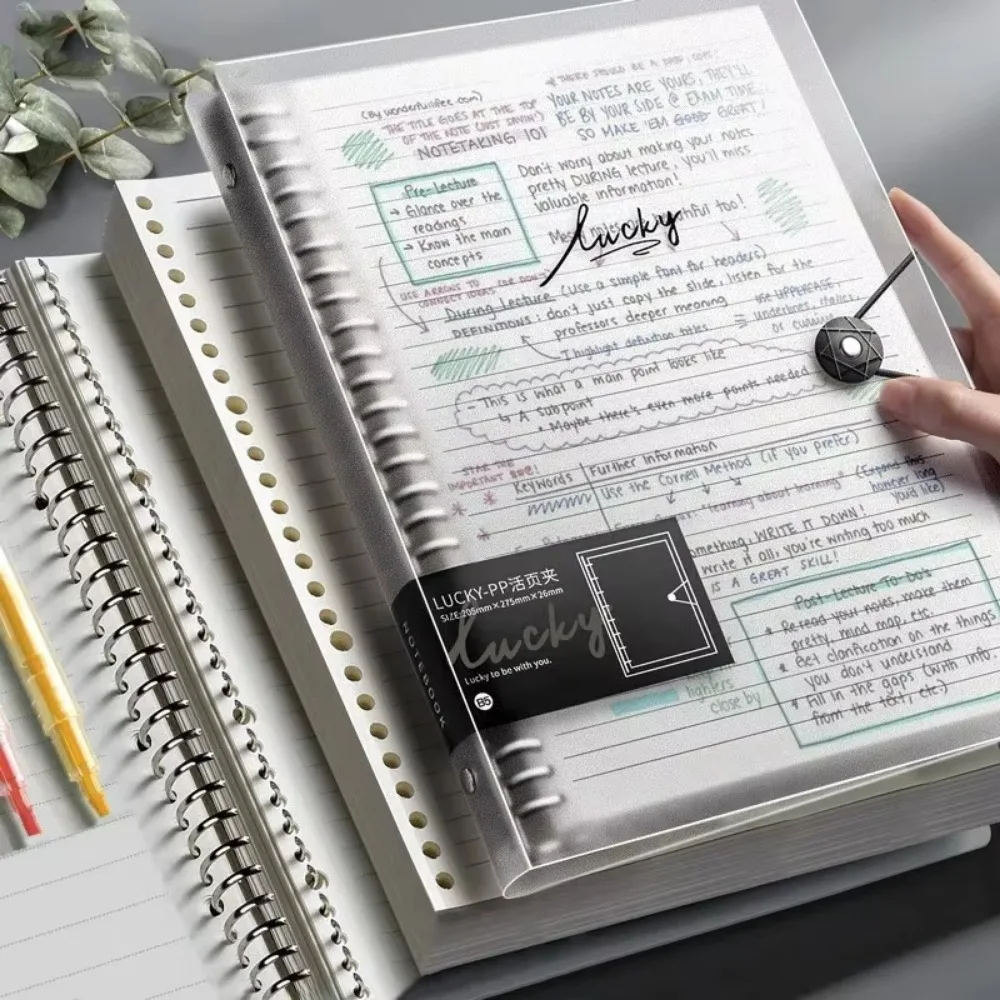 (By wonderfullifee.com)
THE TITLE GOES AT THE TOP
OF THE NOTE (JUST SAYIN')
NOTETAKING 101
* THERE SHOULD BE A
YOUR NOTES ARE YOURS, THEY'LL
BE BY YOUR SIDE @ EXAM TIME
SO MAKE 'EM GOOD GREAT!
Pre-Lecture
→ Glance over the
readings
→ Know the main
concepts
Don't worry about making your notes
pretty DURING lecture, you'll miss
valuable information!
too!
Lucky
USE ARROWS TO
CONNECT IDEAS
During Lecture (use a simple font for headers)
DEFINITIONS: don't just copy the slide, listen for the
professors deeper meaning
I highlight definition titles
USE UPPERCASE,
underlines, italics,
or cursive
- This is what a main point looks like
↳ A subpoint
* Maybe there's even more points needed
STAR THE
IMPORTANT
Keywords
Further Information
Use the Cornell Method (if you prefer)
"learning about learning"
(Expand this
however long
you'd like)
WRITE IT DOWN!
write it all, you're writing too much
IS A GREAT SKILL!
LUCKY-PP活页夹
SIZE:205mm×275mm×26mm
Lucky
Lucky to be with you.
B5
NOTEBOOK
Post-Lecture To-Do's
* Re-read your notes, make them
pretty, mind map, etc.
* Get clarification on the things
you don't understand
* Fill in the gaps (with info.
from the text, etc.)
close by